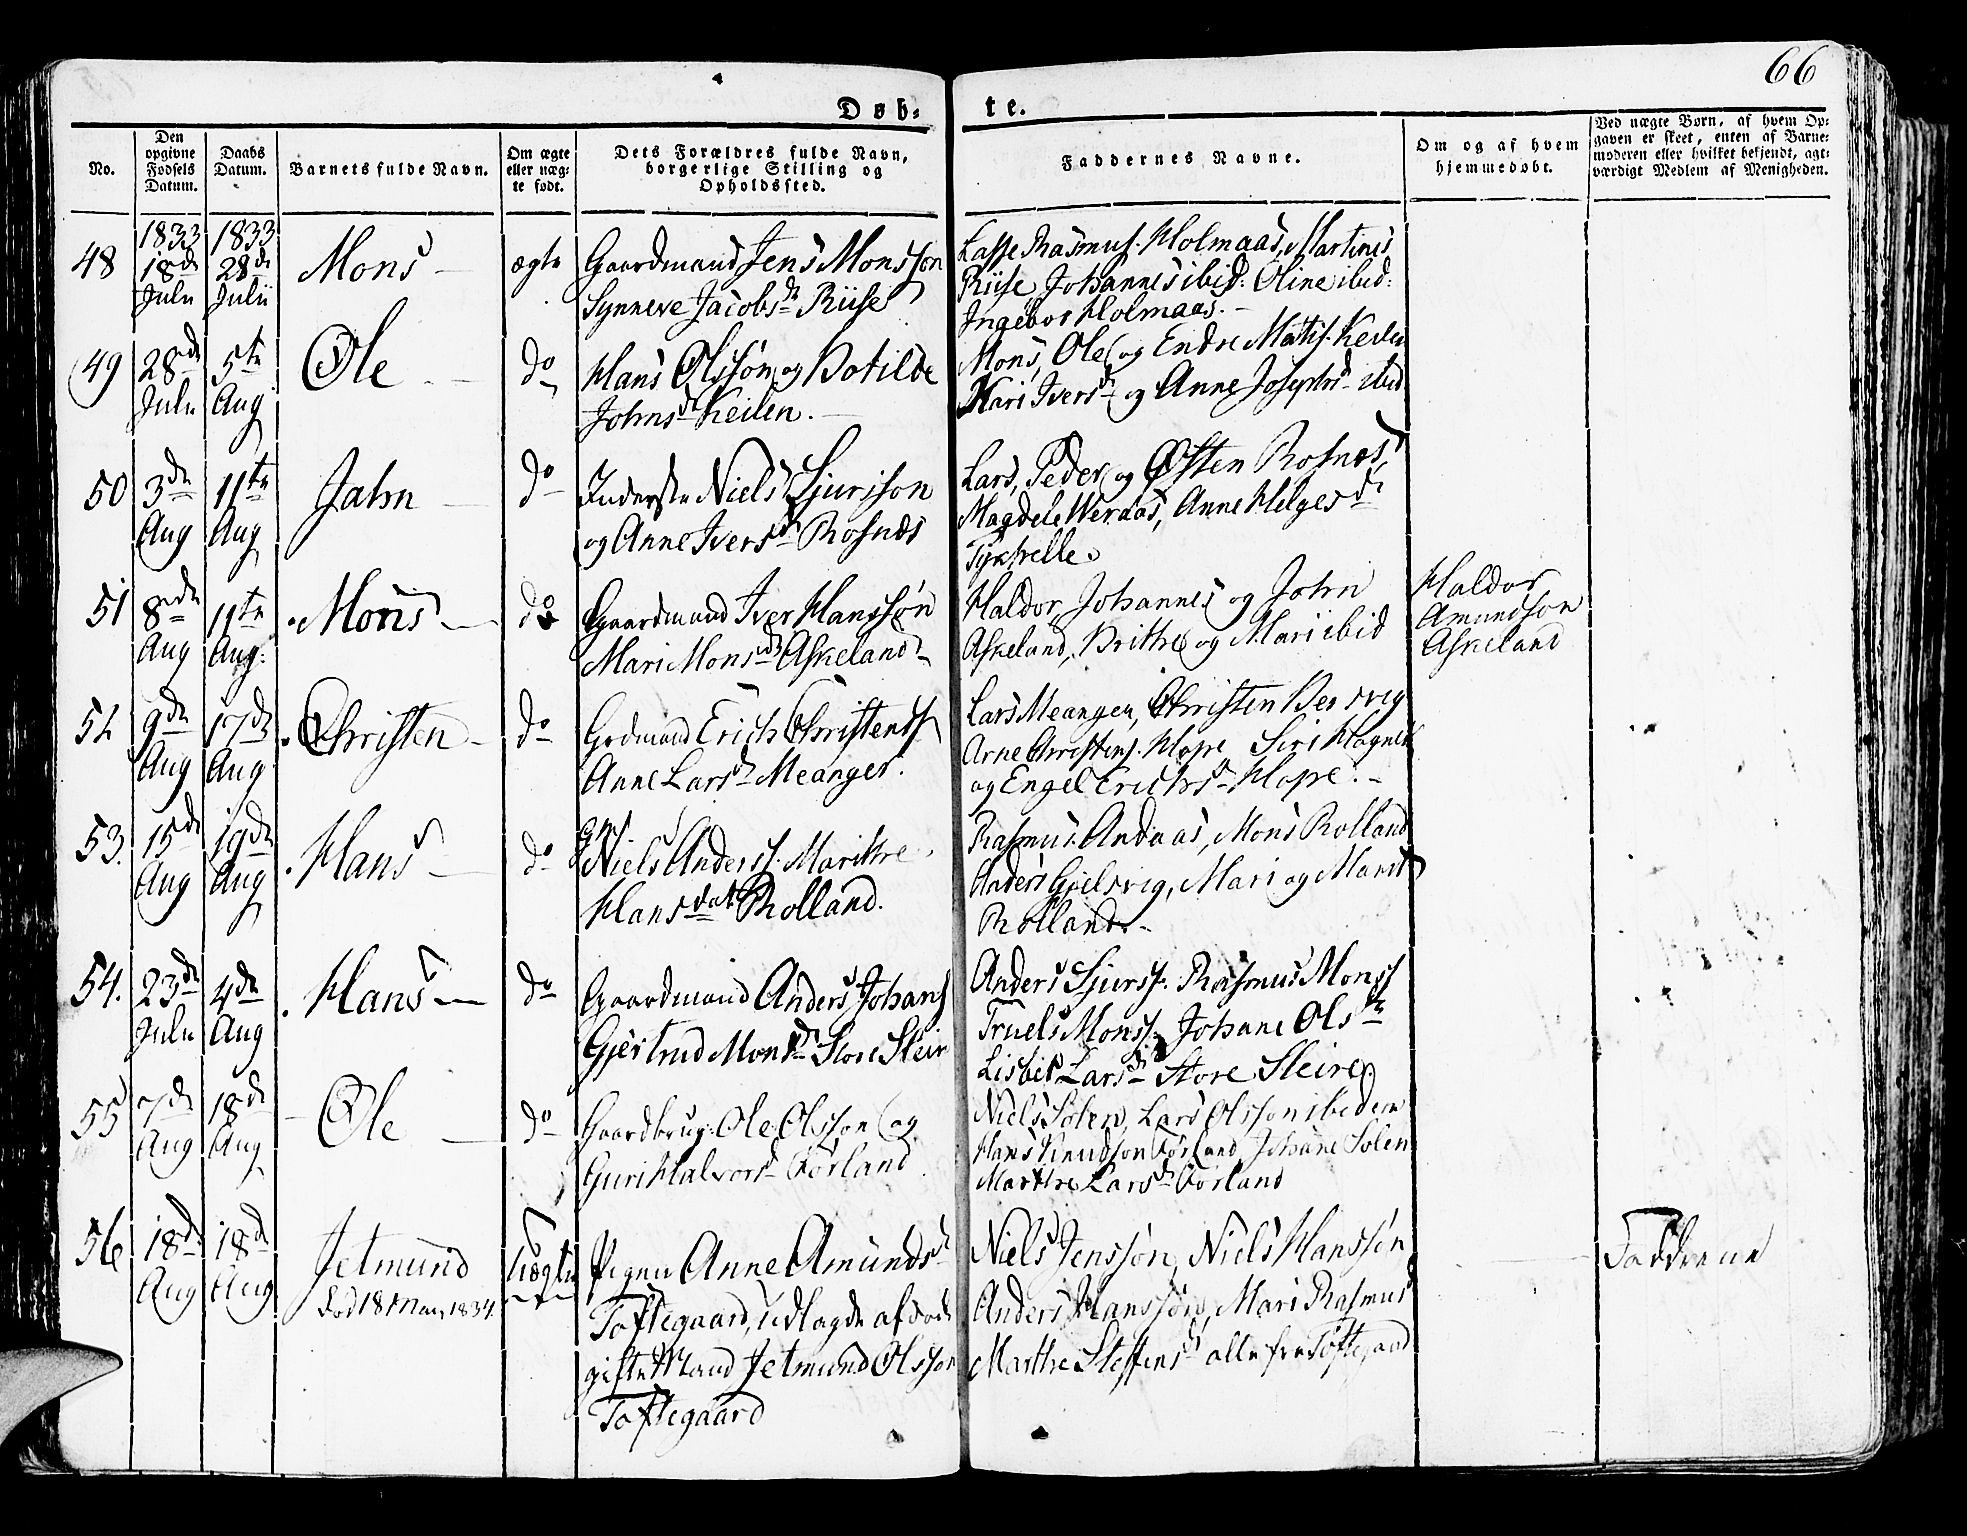 66
Døb-
te.
No.
Den opgivne Fødsels Datum.
Daabs Datum.
Barnets fulde Navn.
Om ægte eller uægte født.
Dets Forældres fulde Navn, borgerlige Stilling og Opholdssted.
Faddernes Navne.
Om og af hvem hjemmedøbt.
Ved uægte Børn, af hvem Opgaven er skeet, enten af Barnemoderen eller hvilket bekjendt, agtværdigt Medlem af Menigheden.
48
1833 18de Julii
1833 28de Julii
Mons
ægte
Gaardmand Jens Monsson
Synneve Jacobsdr Riise
Lasse Rasmuss. Holmaas, Martines
Riise, Johannes ibid: Oline ibid:
Ingebor Holmaas.
49
28de Julii
5te Aug
Ole
do
Hans Olsson og Botilde
Johnsd Keilen.
Mons, Ole og Endre Mattis. Keilen
Kari Iversd og Anne Josephsd ibid
50
3de Aug
11te Aug
Jahn
do
Inderste Niels Sjursson
og Anne Iversd Rosnæs
Lars, Peder og Østen Rosnæs,
Magdele Weraas, Anne Helgesdr
51
8de Aug
11te Aug:
Mons
do
Gaardmand Iver Hanssøn
Mari Monsdr Askeland
Haldor, Johannes og John
Askeland, Brithe og Mari ibid
Haldor
Amundson
Askeland
52
9de Aug
17de Aug
Christen
do
Grdmand Erich Christens.
Anne Larsd Meanger.
Lars Meanger, Christen
Arne Christens. Hope Siri
og Engel Erichsd Hope.
53.
15de Aug
19de Aug
Hans
do
Gm
Niels Anderss. Marithe
Hansdat. Rolland.
Rasmus Andaas, Mons Rolland
Anders Gjelsvig, Mari og
Rolland.
54.
23de Julii
4de Aug
Hans
do
Gaardmand Anders Johans
Gjertrud Monsd Store Sleire
Anders Sjurss. Rasmus Monss
Truels Monss. Johane Olsdr
Lisbet Larsd Store Sleire
55
7de Aug
18de Aug
Ole
do
Gaardbrug. Ole Olsson og
Guri Halvorsd Førland
Niels Solen, Lars Olsson ibidem
Hans Knudson Førland Johane Solen
Marthe Larsd Førland
56
18de Aug
18de Aug
Jetmund
død 18 May 1834.
Uægte
Pigen Anne Amundsd
Toftegaard, udlagde
gifte Mand Jetmund Olsson
Toftegaard
Niels Jenssøn, Niels Hanssøn
Anders Hanssøn, Mari Rasmus
Marthe Steffensd alle fra Toftegaard
Faddrene